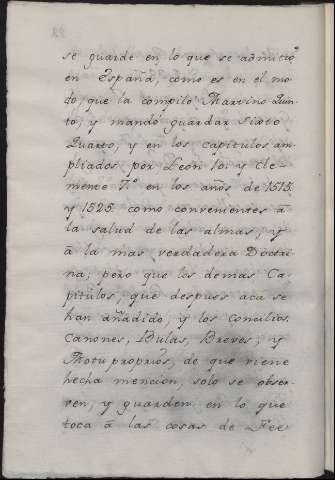 se guarde en lo que se admitio
en España, como es en el mo-
do, que la compilo Martino Quin-
to, y mandó guardar Sixto
Quarto, y en los capitulos am-
pliados por León 10, y Cle-
mente 7º en los años de 1515
y 1525 como convenientes à
la salud de las almas, y
à la mas verdadera Doctri
na; pero que los demas Ca-
pitulos, que despues aca se
han añadido, y los concilios,
Canones, Bulas, Breves, y
Motu proprios, de que viene
hecha mencion, solo se obser-
ven, y guarden en lo que
toca à las cosas de Fee